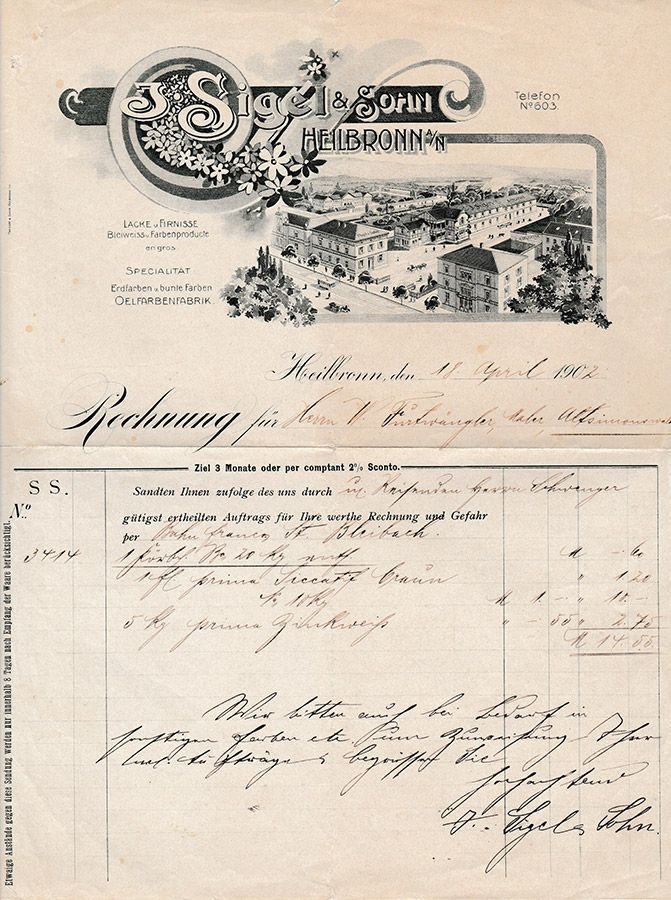 J. Sigel & Sohn
Heilbronn a/N
Telefon
No 603
LACKE u. FIRNISSE
Bleiweiss u. Farbenproducte
en gros.
SPECIALITÄT
Erdfarben u. bunte Farben
OELFARBENFABRIK
Heilbronn, den 18. April 1902
Rechnung für Herrn W. Furtwängler, Maler, Altsimonswald
Ziel 3 Monate oder per comptant 2% Sconto.
S S.
Sandten Ihnen zufolge des uns durch u/ Reisenden Herrn Schwenger
No
gütigst ertheilten Auftrags für Ihre werthe Rechnung und Gefahr
per Bahn franco St. Bleibach.
3414 1 20 Kg M -.60
1 fl prima Siccatif braun " 1.20
10 Kg M 1.- " 10.-
5 Kg prima Zinkweiß " - 55 " 2.75
M 14.55
Wir bitten auch bei Bedarf in
sonstigen Farben etc um Zuweisung Ihrer
Aufträge & begrüssen Sie
hochachtend
J. Sigel & Sohn.
Etwaige Anstände gegen diese Sendung werden nur innerhalb 8 Tagen nach Empfang der Waare berücksichtigt.